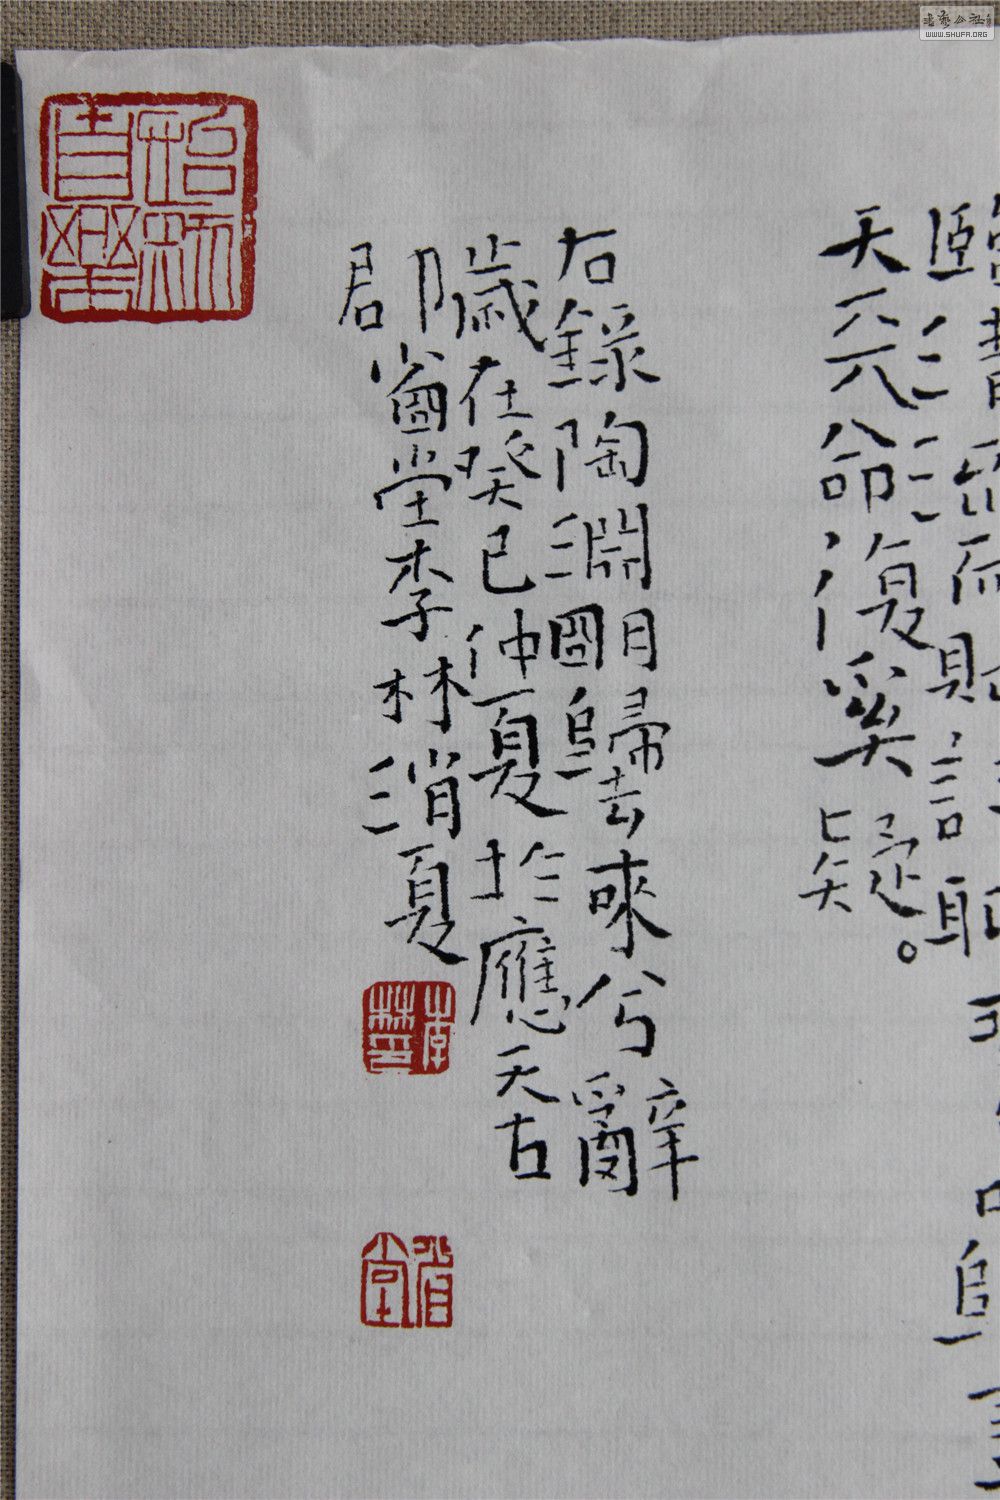 書藝公社
WWW.SHUFA.ORG
臨清流而賦詩聊
天命復奚疑。
右錄陶淵明歸去來兮辭
歲在癸巳仲夏於應天古
郡省堂李林消夏
李林印
省堂
自樂